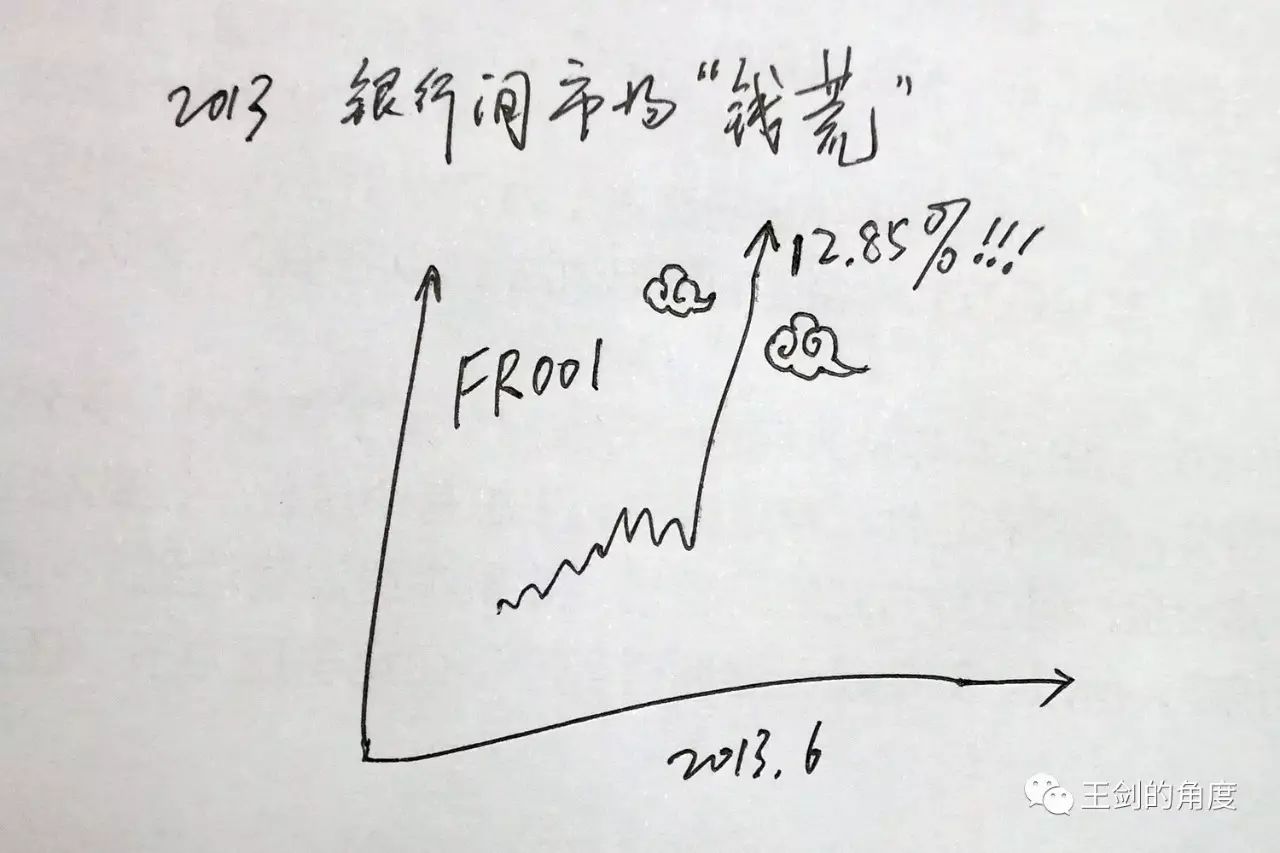 2013 银行间市场“钱荒”
12.85%!!!
FR001
2013.6
王剑的角度